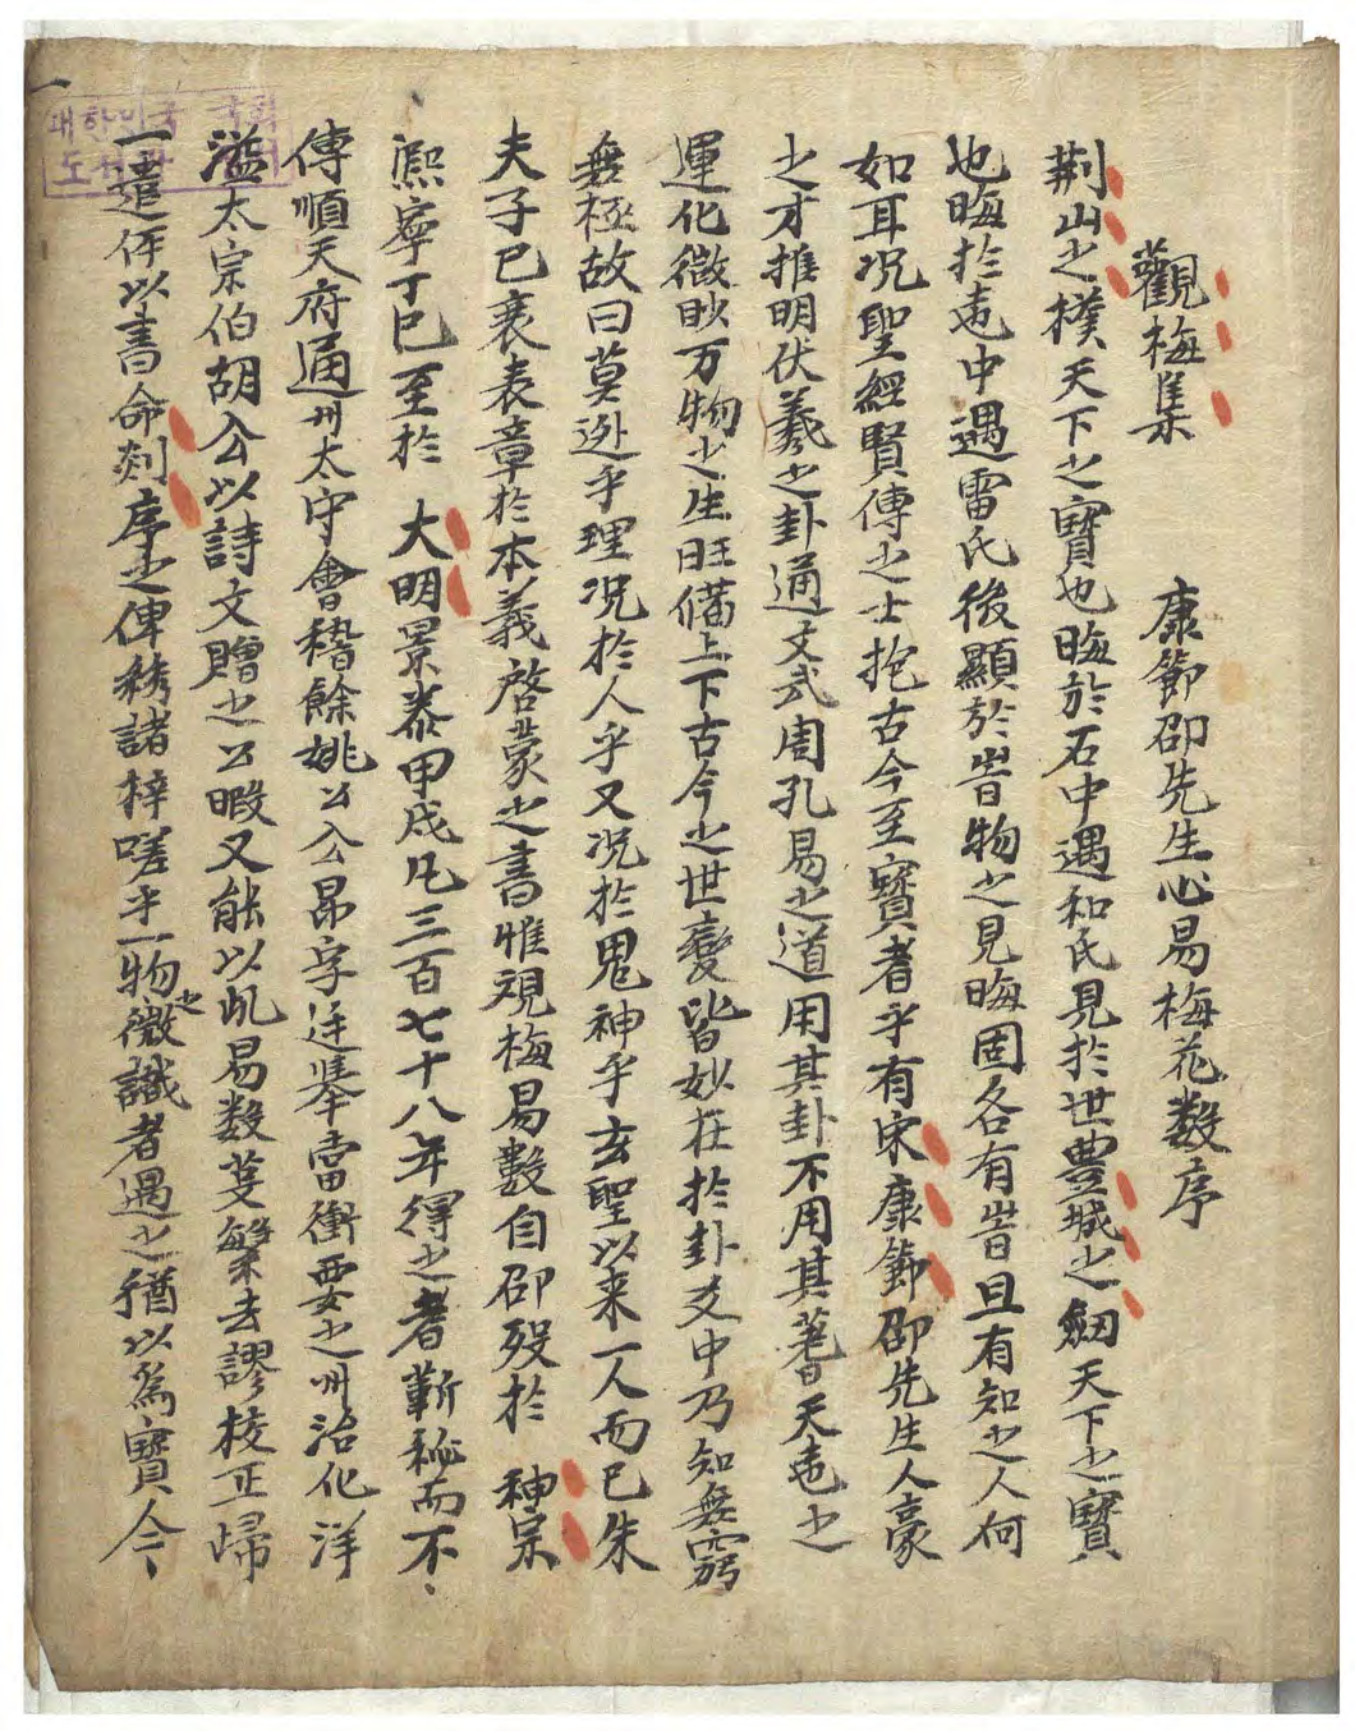 觀梅集　康節邵先生心易梅花數序
荆山之樸天下之寶也晦於石中遇和氏見於世豊城之劒天下之寶
也晦於𡈽中遇雷氏後顯於旹物之見晦固各有旹且有知之人何
如耳况聖經賢傳之士抱古今至寶者乎有宋康節邵先生人豪
之才推明伏羲之卦通文武周孔易之道用其卦不用其蓍天𡈽之
運化微眇万物之生旺備上下古今之世變皆妙在於卦爻中乃知無窮
無極故曰莫逃乎理况於人乎又况於鬼神乎玄聖以来一人而已朱
夫子已裒表章於本義啓蒙之書惟視梅易數自邵歿於　神宗
熙寧丁巳至於　大明景泰甲戌凡三百七十八年得之者蘄秘而不
傳順天府通州太守會稽餘姚公公昂字廷舉當衝要之州治化洋
溢太宗伯胡公以詩文贈之公暇又能以此易数芟繁去謬校正歸
一遣伻以書命剡序之俾綉諸梓嗟乎一物之微識者遇之猶以爲寶今
대한민국 국회
도서관